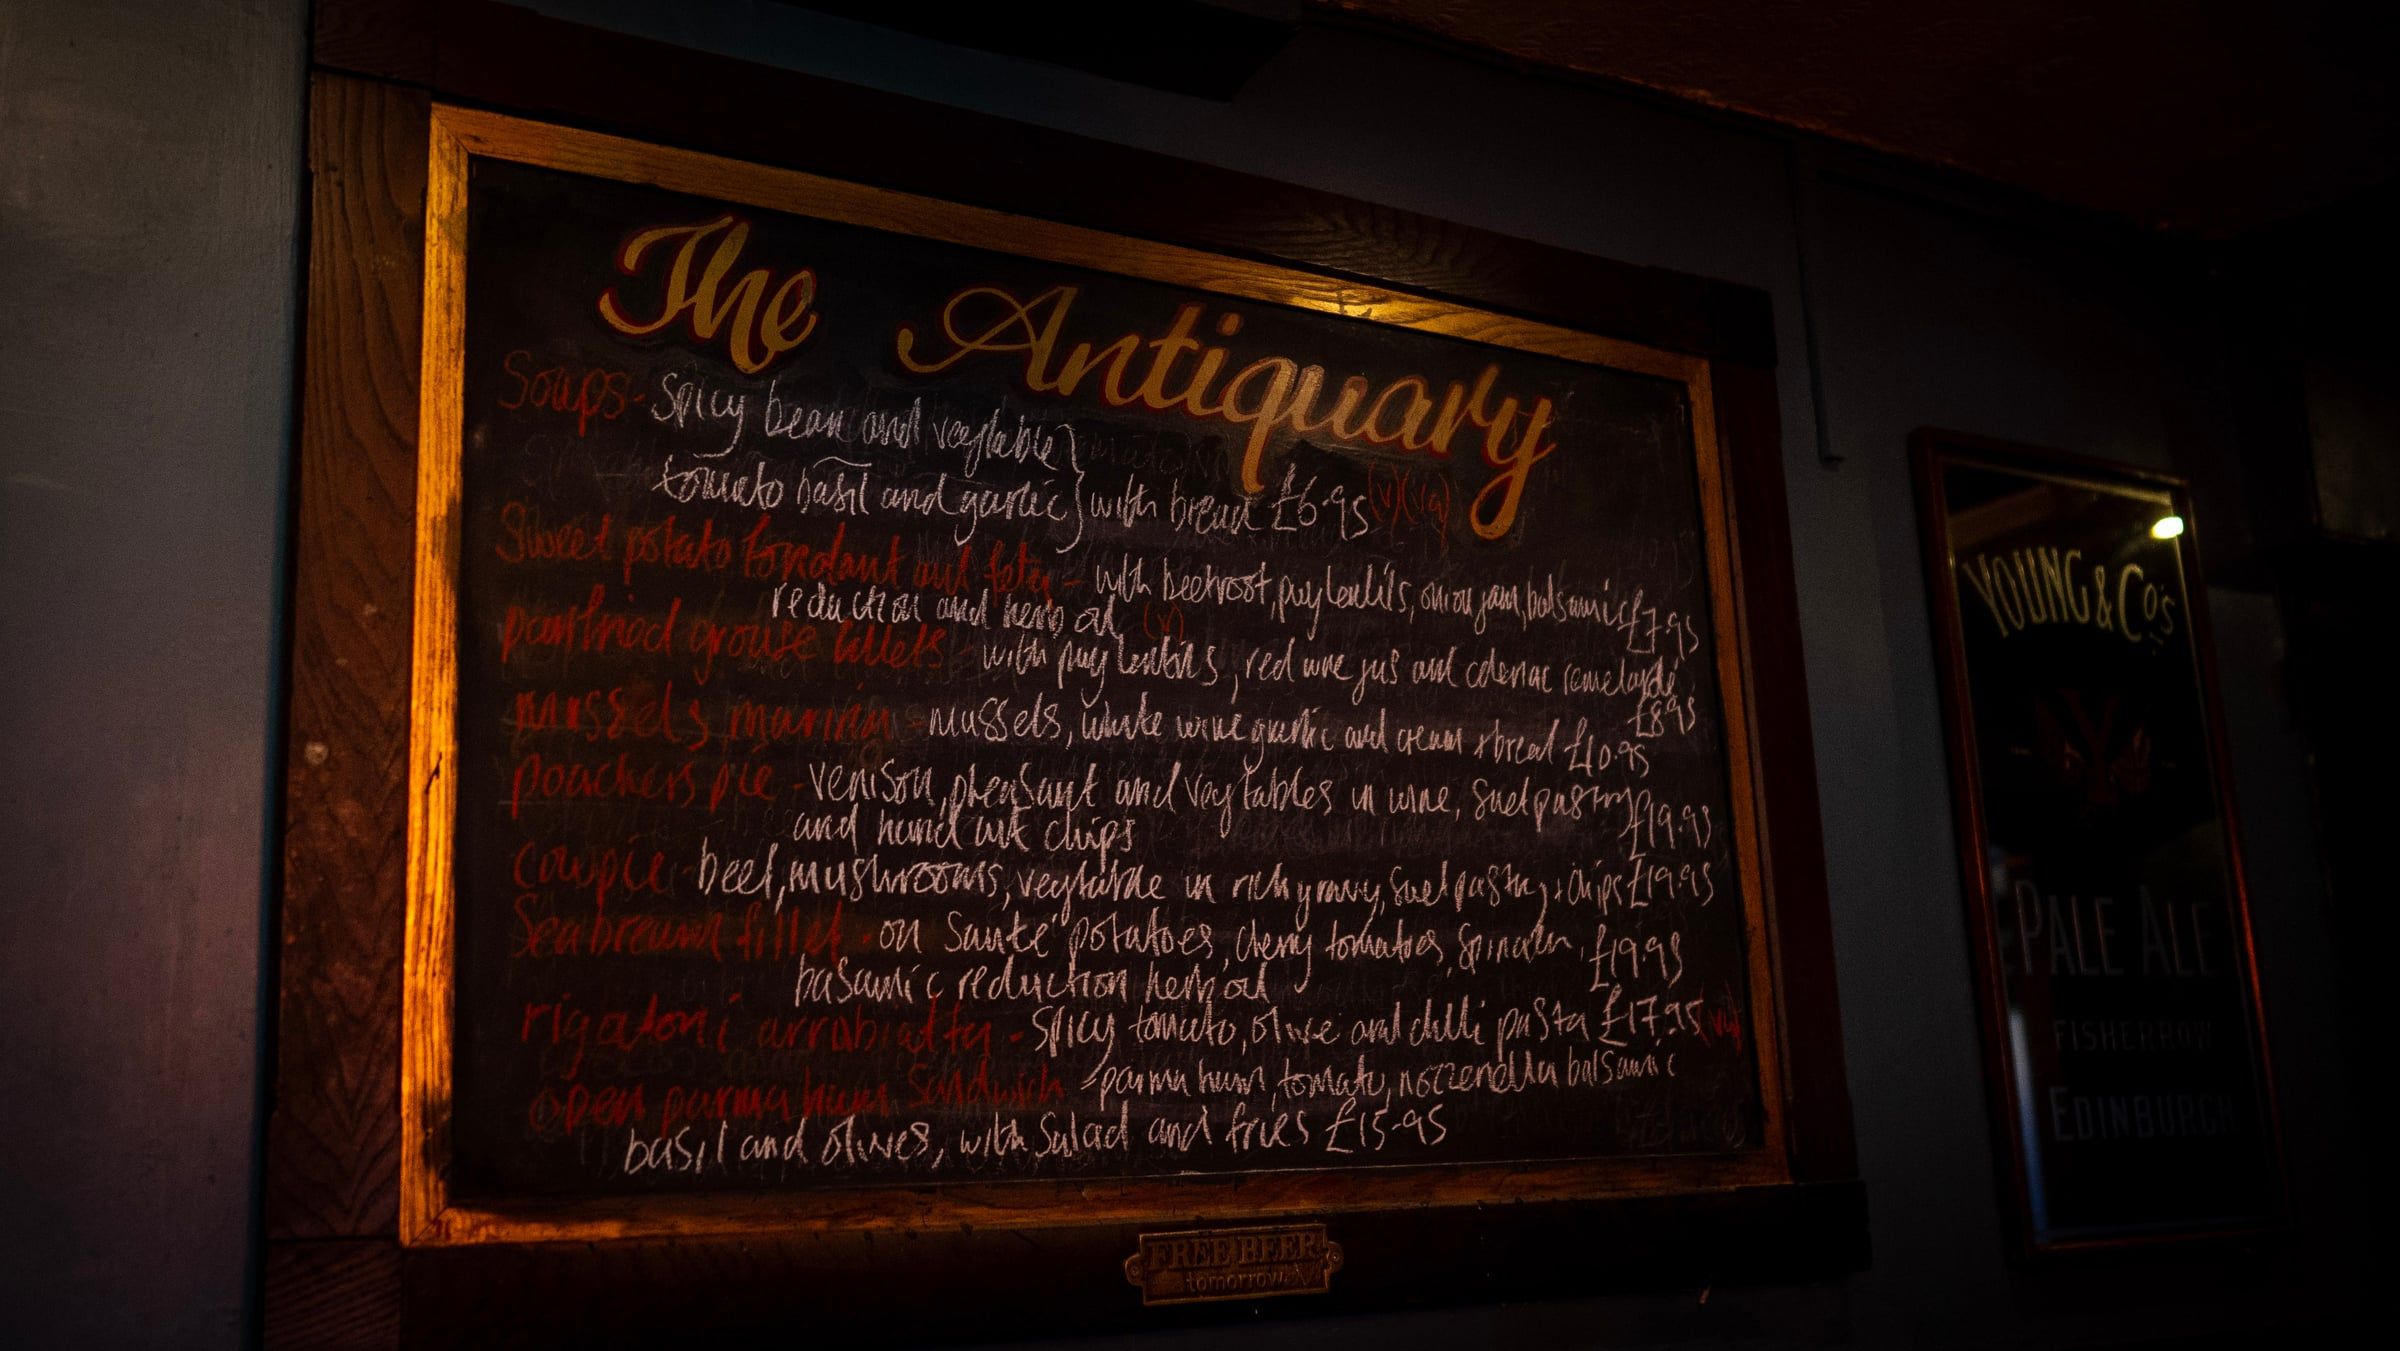 The Antiquary
Soups - Spicy bean and vegetable }
tomato basil and garlic } with bread £6.95 (v)(vg)
Sweet potato fondant and feta - with beetroot, puy lentils, onion jam, balsamic £7.95
reduction and herb oil (v)
panfried grouse fillets - with puy lentils, red wine jus and celeriac remelarde
£8.95
mussels mariniere - mussels, white wine garlic and cream + bread £10.95
poachers pie - venison, pheasant and vegetables in wine, suet pastry £19.95
and hand cut chips
cow pie - beef, mushrooms, vegetable in rich gravy, suet pastry + chips £19.95
Seabream fillet - on sauté potatoes, cherry tomatoes, spinach, £19.95
balsamic reduction herb oil
rigatoni arrabiatta - spicy tomato, olive and chilli pasta £17.95
open parma ham sandwich - parma ham, tomato, mozzerella balsamic
basil and olives, with salad and fries £15.95
FREE BEER
tomorrow
YOUNG & Co's
PALE ALE
FISHERROW
EDINBURGH